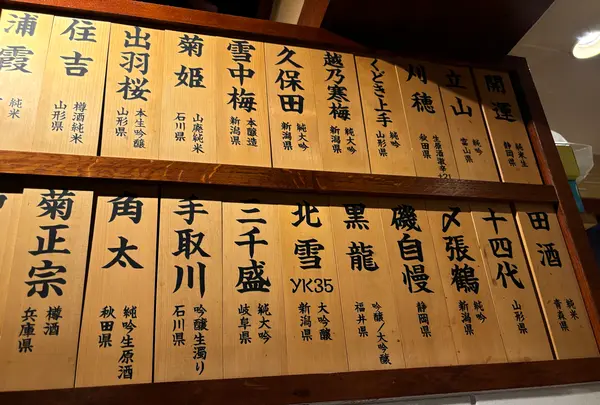 開運
純米生
静岡県
立山
純吟
富山県
刈穂
純吟
生原酒激辛+21
秋田県
くどき上手
純吟
山形県
越乃寒梅
純大吟
新潟県
久保田
純大吟
新潟県
雪中梅
本醸造
新潟県
菊姫
山廃純米
石川県
出羽桜
本生吟醸
山形県
住吉
樽酒純米
山形県
浦霞
純米
田酒
純米
青森県
十四代
山形県
〆張鶴
純吟
新潟県
磯自慢
静岡県
黒龍
吟醸/大吟醸
福井県
北雪
YK35
大吟醸
新潟県
三千盛
純大吟
岐阜県
手取川
吟醸生濁り
石川県
角太
純吟生原酒
秋田県
菊正宗
樽酒
兵庫県